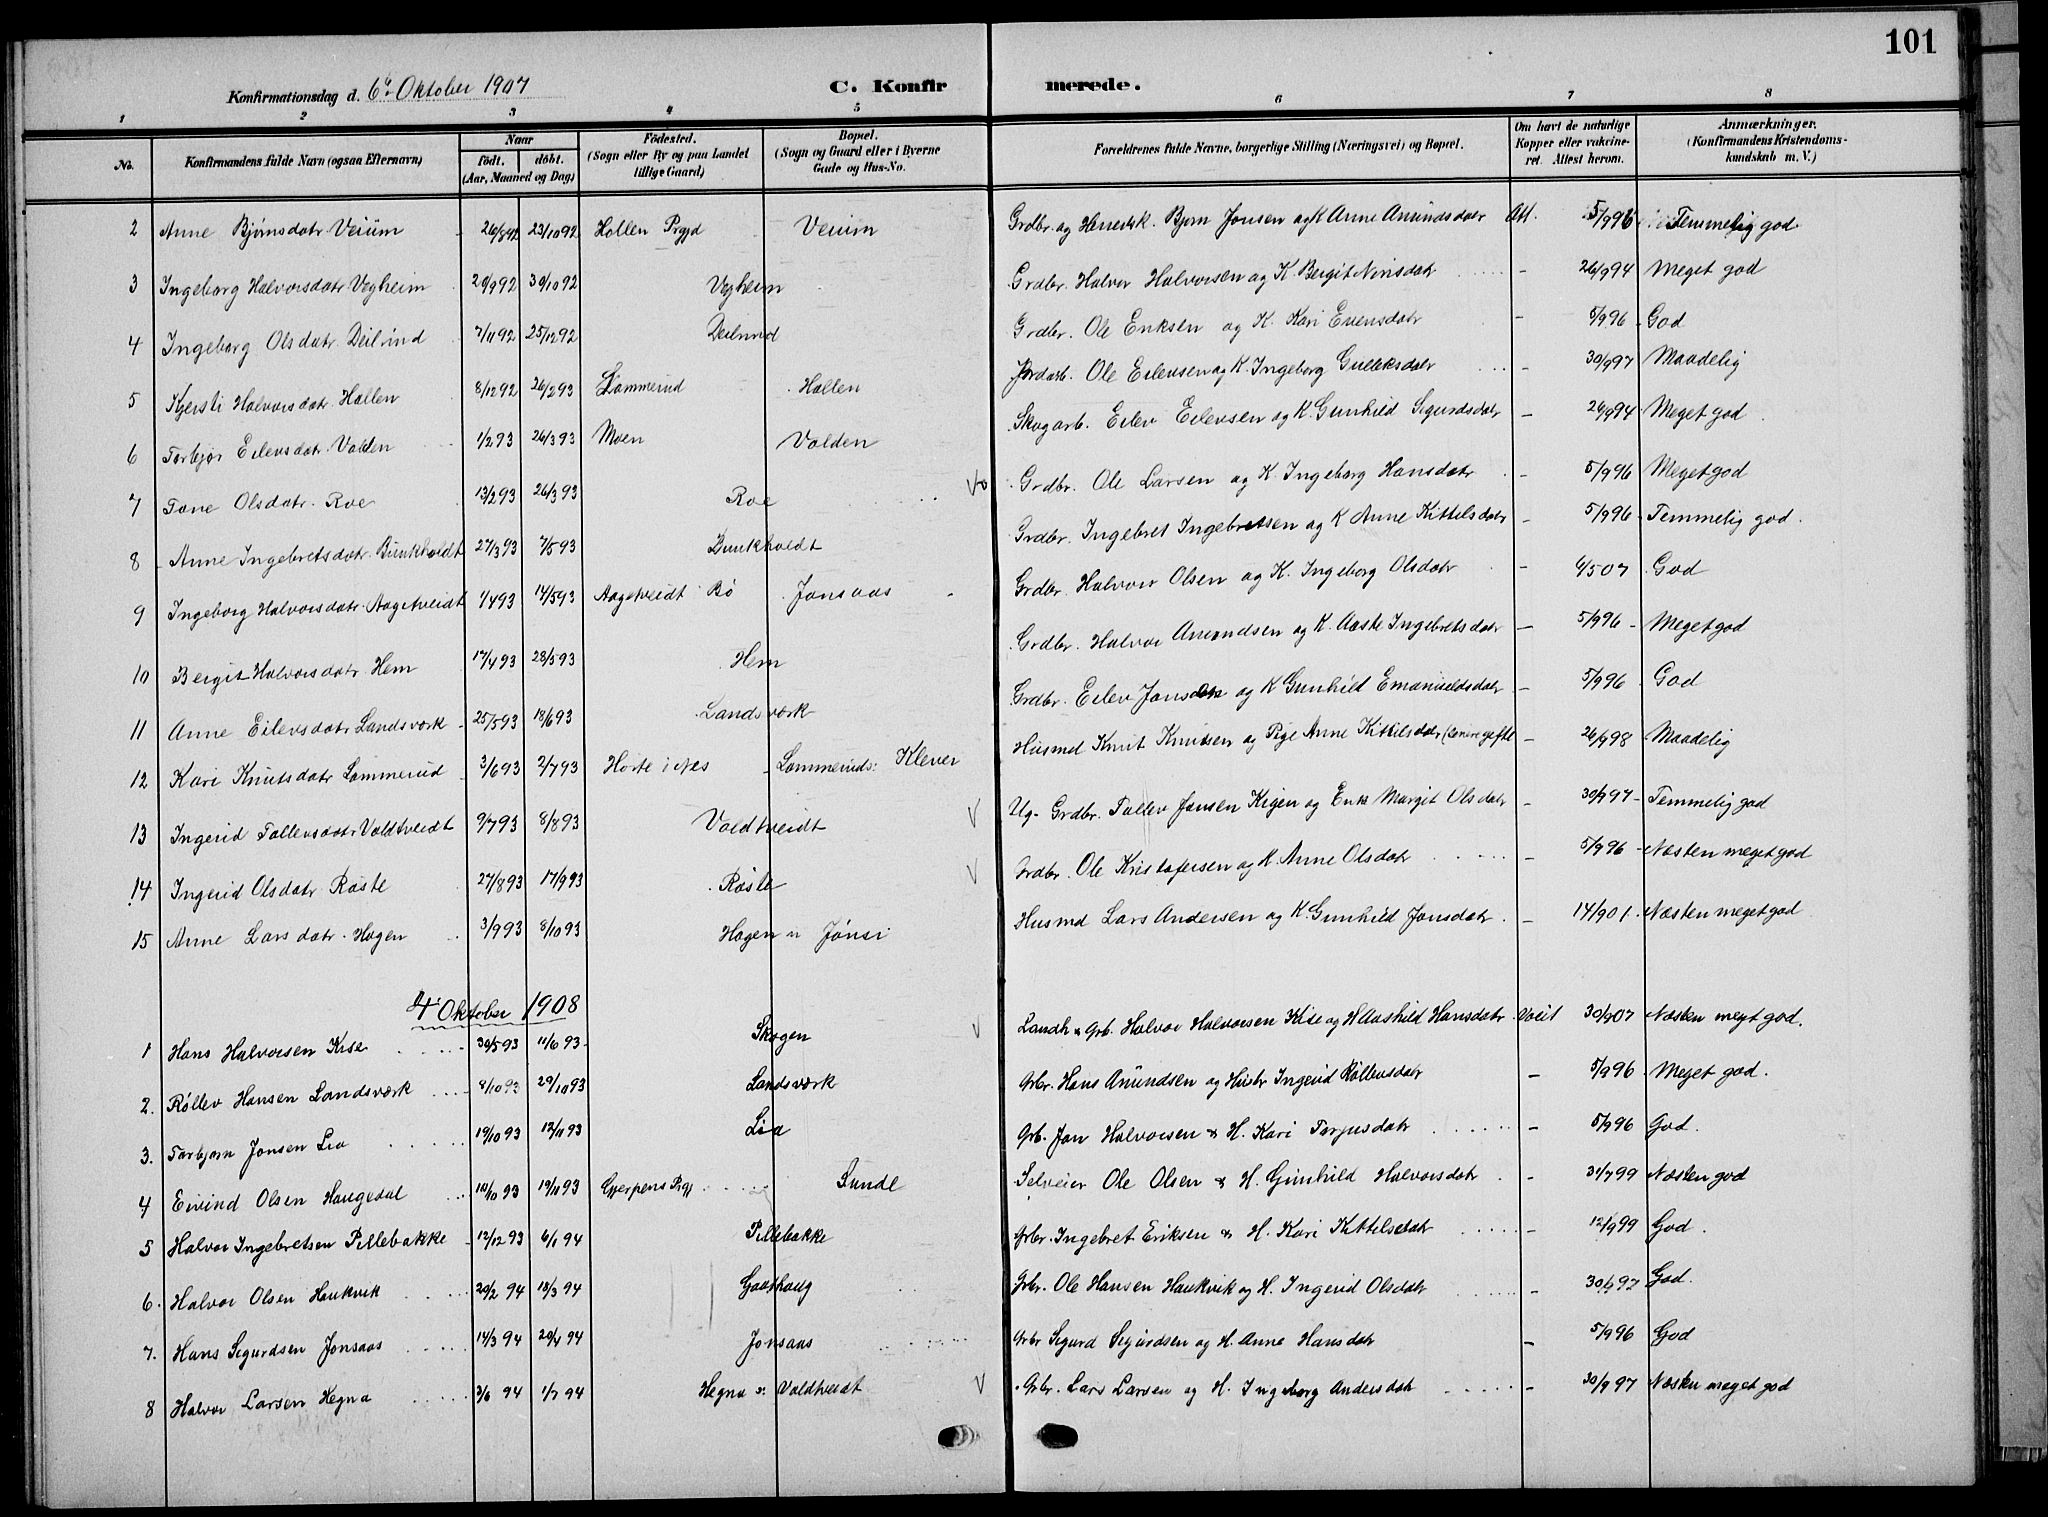 101
Konfirmationsdag d. 6te Oktober 1907 C. Konfirmerede.
1 2 3 4 5 6 7 8
No. Konfirmandens fulde Navn (ogsaa Efternavn) Naar født. døbt. (Aar, Maaned og Dag) Fødested. (Sogn eller By og paa Landet tillige Gaard) Bopæl. (Sogn og Gaard eller i Byerne Gade og Hus-No. Forældrenes fulde Navne, borgerlige Stilling (Næringsvei) og Bopæl. Om havt de naturlige Kopper eller vaccineret. Attest herom. Anmærkninger. (Konfirmandens Kristendomskundskab m. V.)
2 Anne Bjørnsdatr Veium 23/10 92 Hollen Prgjd Veium Grdbr. og Bjørn Jonsen og K Anne Amundsdatr Att. 5/9 96 Temmelig god
3 Ingeborg Halvorsdatr Vegheim 20/9 92 30/10 92 Vegheim Grdbr. Halvor Halvorsen og K. Bergit Nirisdatr - 26/9 94 Meget god
4 Ingeborg Olsdatr. Deilrind 7/11 92 25/12 92 Deilrind Grdbr. Ole Eriksen og K. Kari Evensdatr - 5/9 96 God
5 Kjersti Halvorsdatr. Hollen 8/12 92 26/2 93 Lømmerud Hollen Jordarb. Ole Eilevsen og K. Ingeborg Gulleksdatr - 30/9 97 Maadelig
6 Torbjør Eilevsdatr. Valden 1/2 93 26/3 93 Moen Valden Skogarb. Eilev Eilevsen og K. Gunhild Sigurdsdatr - 26/9 94 Meget god
7 Tone Olsdatr. Roe 13/2 93 26/3 93 Roe Grdbr. Ole Larsen og K Ingeborg Hansdatr - 5/9 96 Meget god
8 Anne Ingebretsdatr. Bunkholdt 27/3 93 7/5 93 Bunkholdt Grdbr. Ingebret Ingebretsen og K Anne Kittilsdatr - 5/9 96 Temmelig god.
9 Ingeborg Halvorsdatr. Aagetveidt 1/4 93 14/5 93 Aagetveidt Bø Jonsaas Grdbr. Halvor Olsen og K. Ingeborg Olsdatr - 6/5 07 God
10 Bergit Halvorsdatr. Hem 17/4 93 28/5 93 Hem Grdbr. Halvor Amundsen og K. Aaste Ingebretsdatr - 5/9 96 Meget god
11 Anne Eilevsdatr Landsværk 25/5 93 18/6 93 Landsværk Grdbr. Eilev Jonsen og K Gunhild Emanuelsdatr - 5/9 96 God
12 Kari Knutsdatr Lømmerud 3/6 93 2/7 93 Hørte i Næs Lømmeruds: Klever Husmd Knut Knudsen og Pige Anne Kittilsdatr (senere gifte - 26/9 98 Maadelig
13 Ingerid Tollevsdatr Voldtveidt 9/7 93 8/8 93 Voldtveidt Ug. Grdbr. Tollev Jonsen Kigen og Enk Margit Olsdatr - 30/9 97 Temmelig god
14 Ingerid Olsdatr Røste 27/8 93 17/9 93 Røste Grdbr. Ole Kristofersen og K. Anne Olsdatr - 5/9 96 Næsten meget god
15 Anne Larsdatr. Hagen 3/9 93 8/10 93 Hagen u Jønsi Husmd Lars Andersen og K. Gunhild Jonsdatr. - 14/9 01. Næsten meget god
4 Oktober 1908
1 Hans Halvorsen Kise 30/5 93 11/6 93 Skogen Landh & Grb. Halvor Halvorsen Kise og H Aashild Hansdatr 30/9 07 Næsten meget god.
2. Røllev Hansen Landsværk 8/10 93 29/10 93 Landsværk Grbr. Hans Amundsen og Hustr Ingerid Røllevsdatr - 5/9 96 Meget god.
3. Torbjørn Jonsen Lia 19/10 93 12/11 93 Lia Grb. Jon Halvorsen & H. Kari Torjusdatr - 5/9 96 God.
4 Eivind Olsen Haugedal 10/10 93 19/11 93 Gjerpens Prgj Sundl Selveier Ole Olsen & H. Gunhild Halvorsdatr - 31/7 99 Næsten god
5 Halvor Ingebretsen Pillebakke 12/12 93 6/1 94 Pillebakke Grbr. Ingebret Eriksen & H. Kari Kittilsdatr - 12/9 99 God.
6. Halvor Olsen Haukvik 20/2 94 18/3 94 Gaashaug Grbr. Ole Hansen Haukvik og H. Ingerid Olsdatr - 30/9 97 God.
7. Hans Sigurdsen Jonsaas 14/3 94 20/4 94 Jonsaas Grbr Sigurd Sigurdsen og H. Anne Hansdatr - 5/9 96 God
8 Halvor Larsen Hegna 3/6 94 1/7 94 Hegna u. Voldtveidt Grbr. Lars Larsen og H. Ingeborg Andersdatr - 30/9 97 Næsten meget god